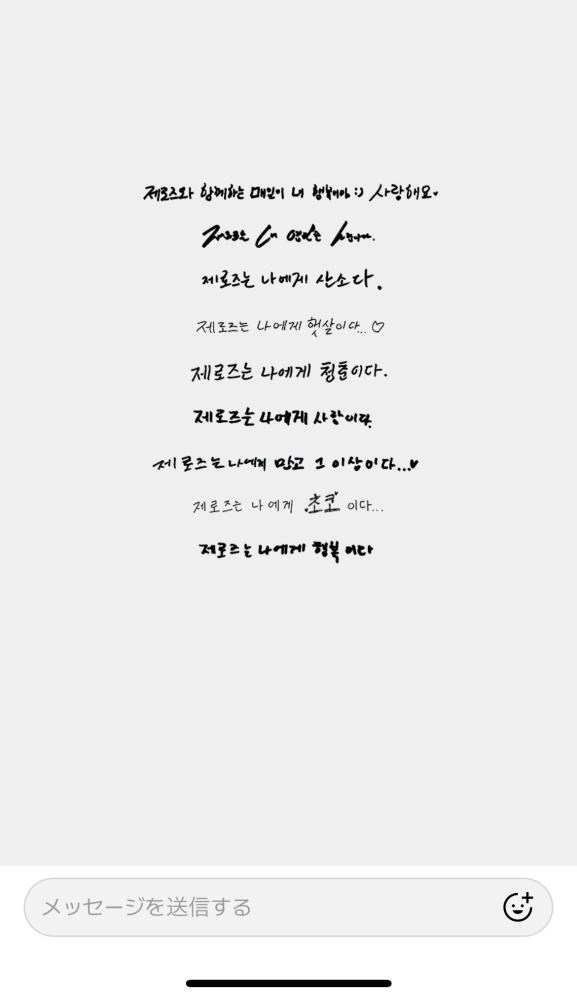 제로즈와 함께하는 매일이 내 행복이야 :) 사랑해요♥
제로즈는 나에게 산소다.
제로즈는 나에게 햇살이다...♡
제로즈는 나에게 청춘이다.
제로즈는 나에게 사랑이다.
제로즈는 나에게 믿고 그 이상이다...♥
제로즈는 나에게 초코 이다...
제로즈는 나에게 행복이다
メッセージを送信する